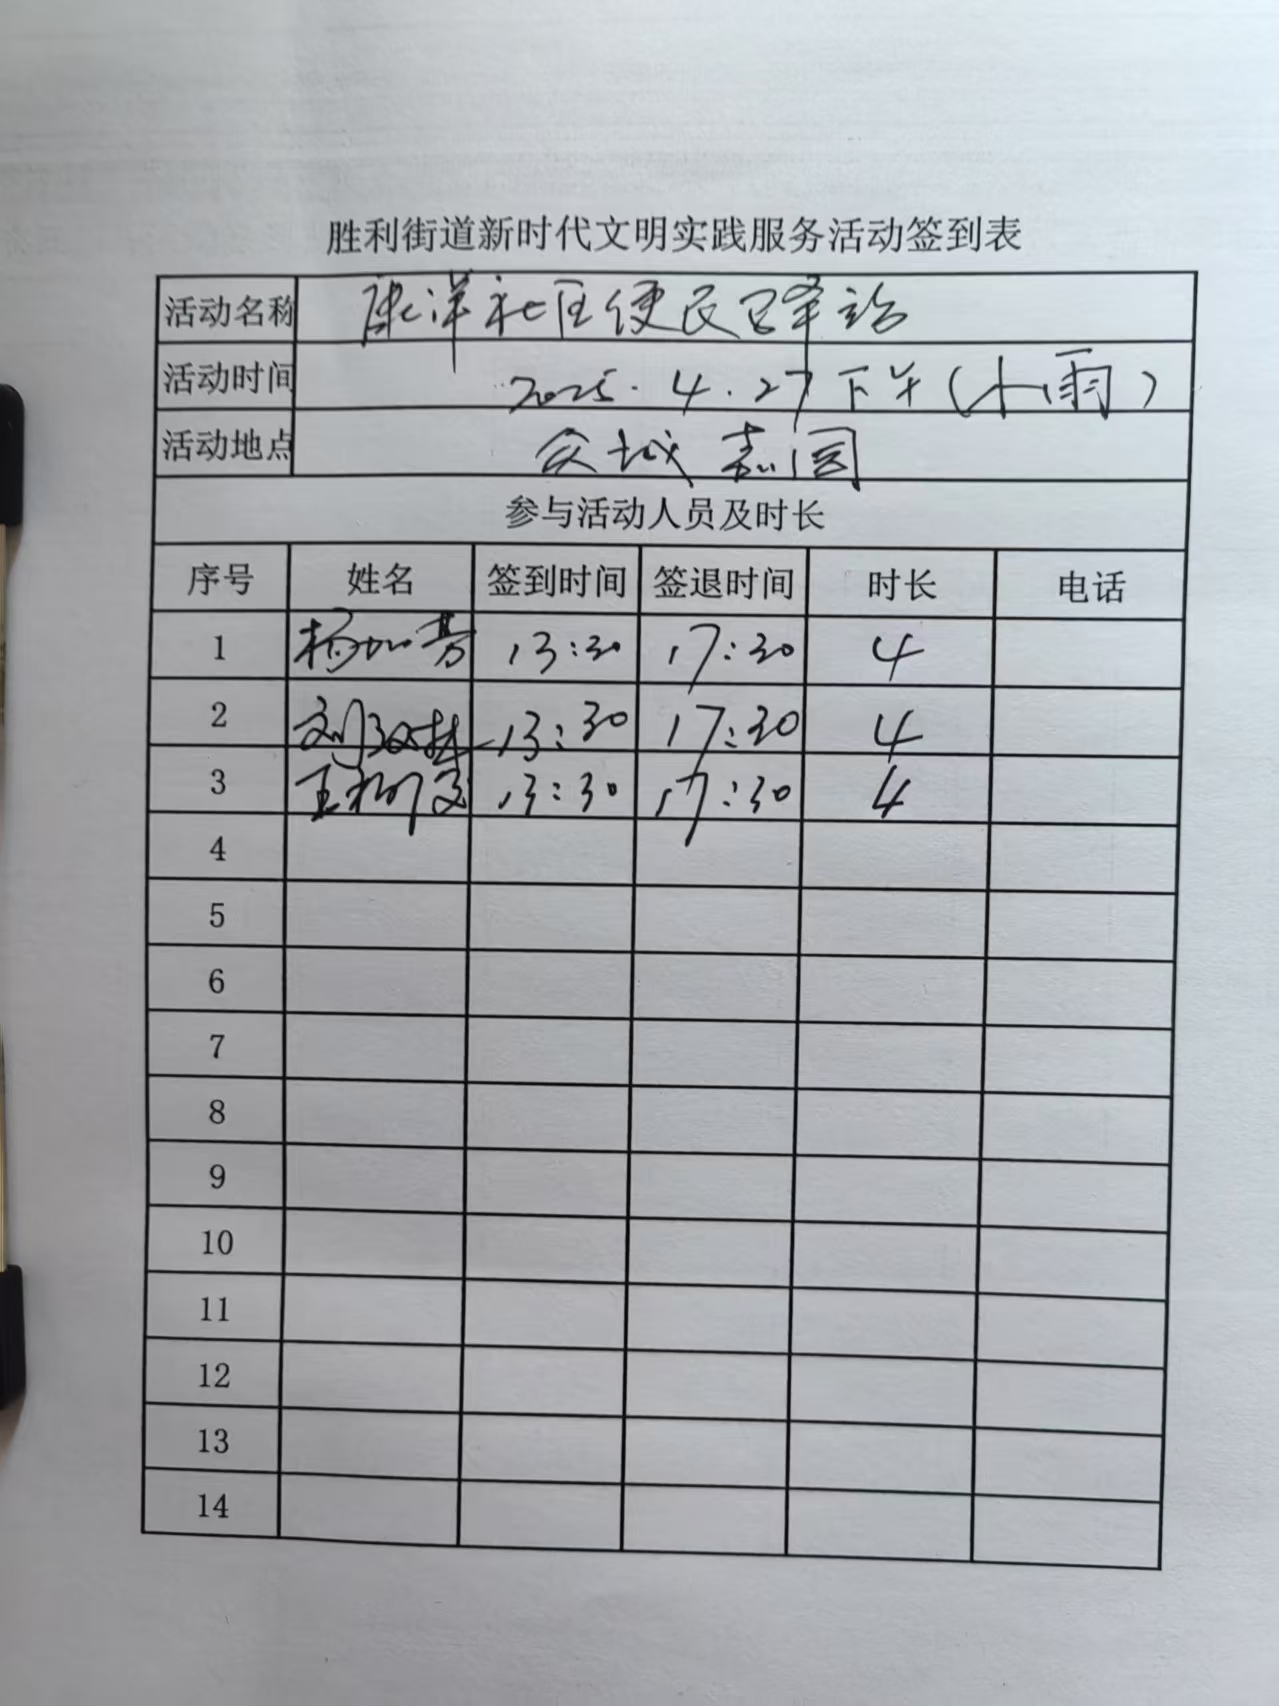 胜利街道新时代文明实践服务活动签到表
活动名称 康洋社区便民驿站
活动时间 2025.4.27下午(小雨)
活动地点 众城嘉园
参与活动人员及时长
序号 姓名 签到时间 签退时间 时长 电话
1 杨加芳 13:30 17:30 4
2 刘 13:30 17:30 4
3 王 13:30 17:30 4
4
5
6
7
8
9
10
11
12
13
14